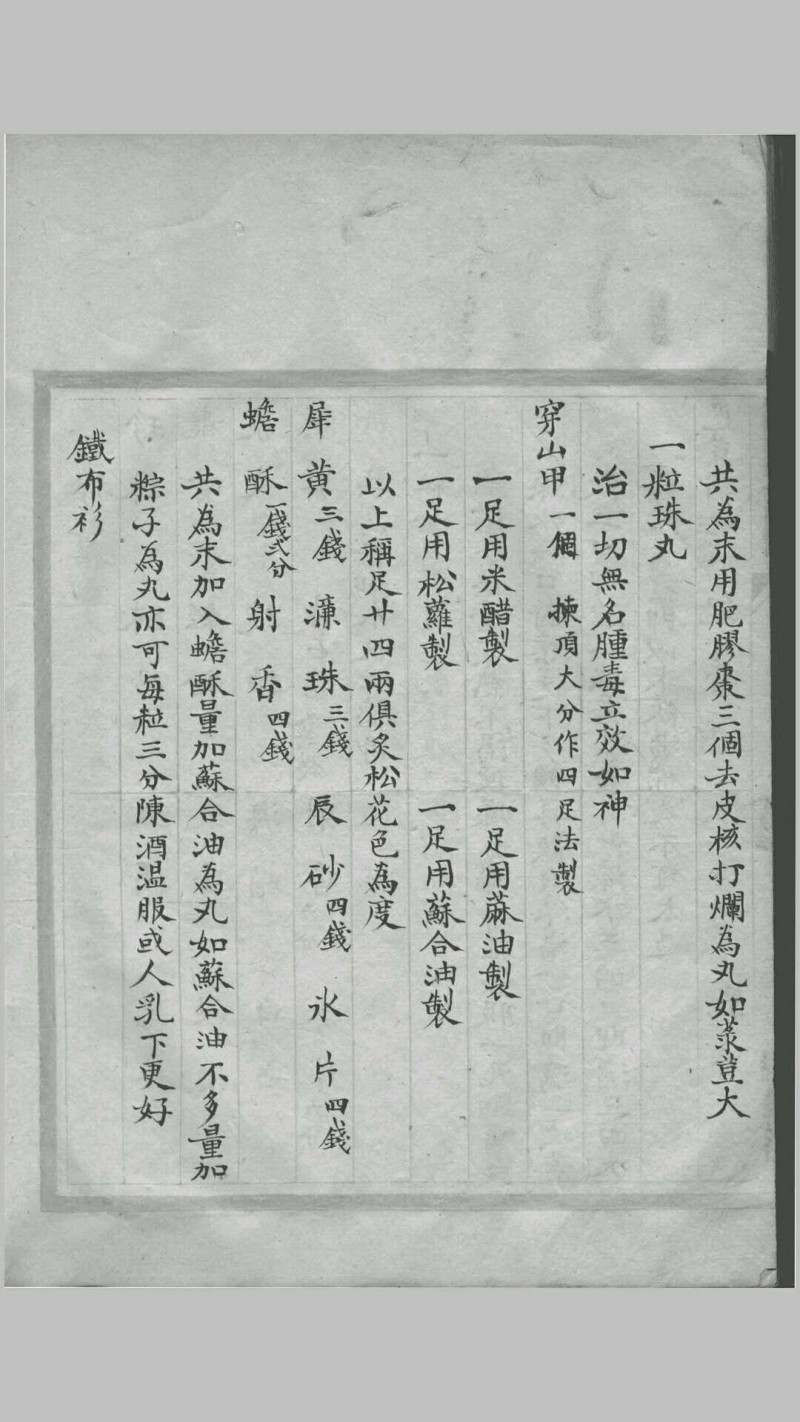 共為末用肥膠棗三個去皮核打爛為丸如菉荳大
一粒珠丸
治一切無名腫毒立效如神
穿山甲一個 揀頂大分作四足法製
一足用米醋製 一足用蔴油製
一足用松蘿製 一足用蘇合油製
以上稱足廿四兩俱炙松花色為度
犀黃三錢 濂珠三錢 辰砂四錢 氷片四錢
蟾酥一錢弍分 射香四錢
共為末加入蟾酥量加蘇合油為丸如蘇合油不多量加
粽子為丸亦可每粒三分陳酒温服或人乳下更好
鐵布衫